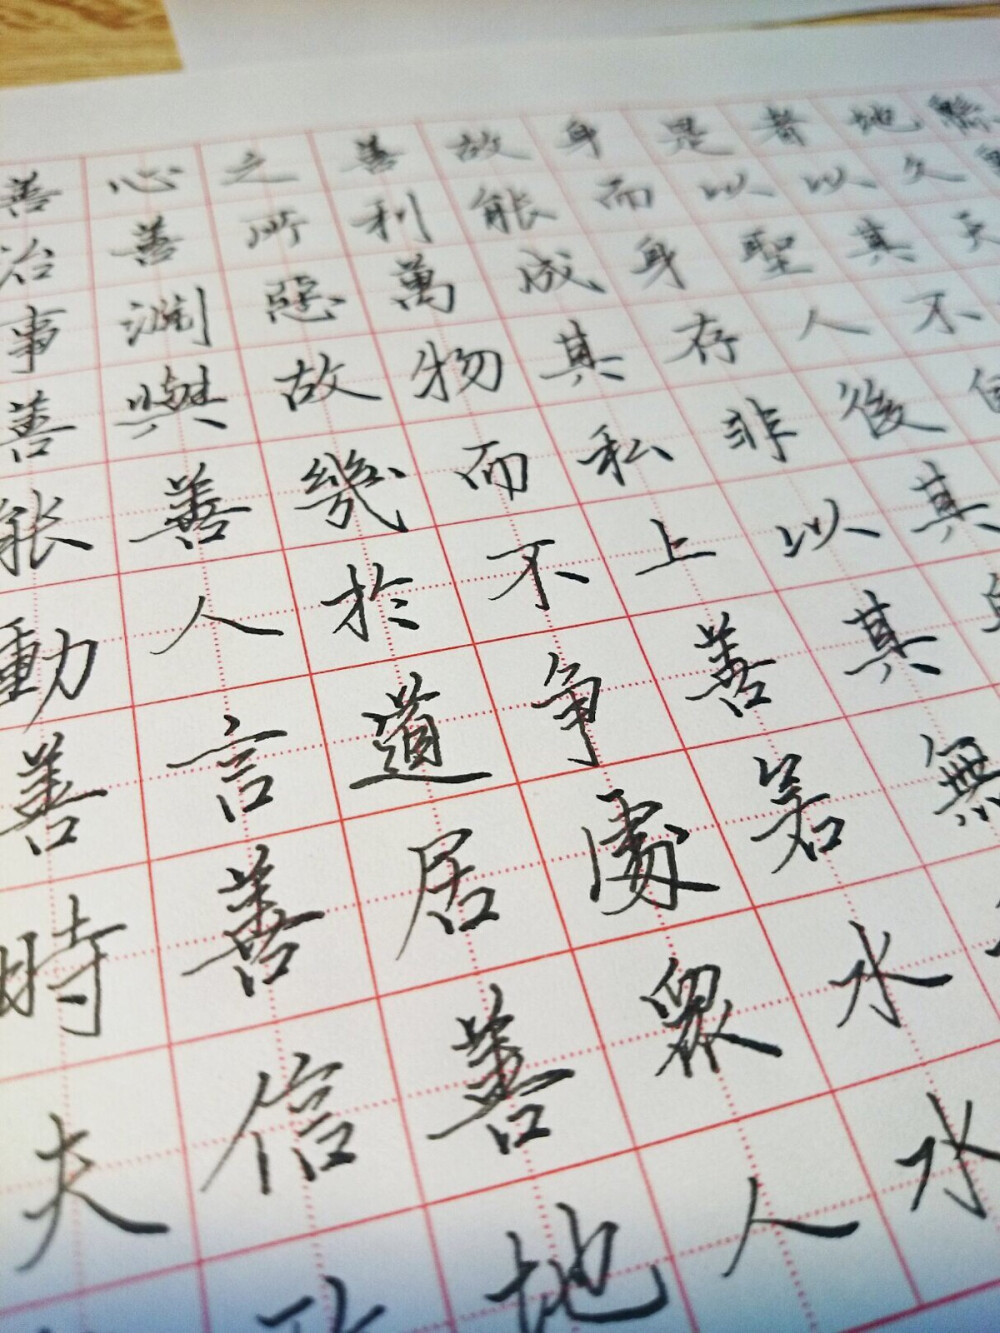 地久天
者以其不自
是以聖人後其
身而身存非以其無
故能成其私上善若水水
善利萬物而不争處眾人
之所惡故幾於道居善地
心善淵與善人言善信政
善治事善能動善時夫